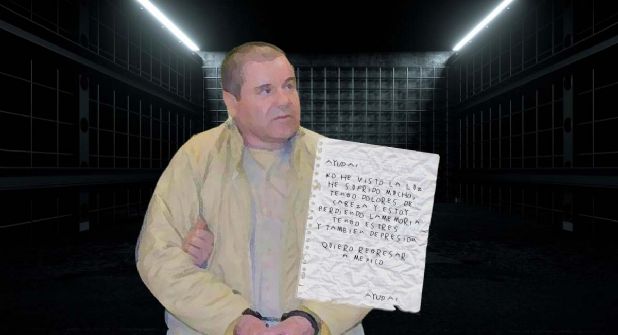 AYUDA!
NO HE VISTO LA LUZ
HE SUFRIDO MUCHO,
TENGO DOLORES DE
CABEZA Y ESTOY
PERDIENDO LA MEMORIA
TENGO ESTRES
Y TAMBIEN DEPRESION
QUIERO REGRESAR
A MEXICO
AYUDA!